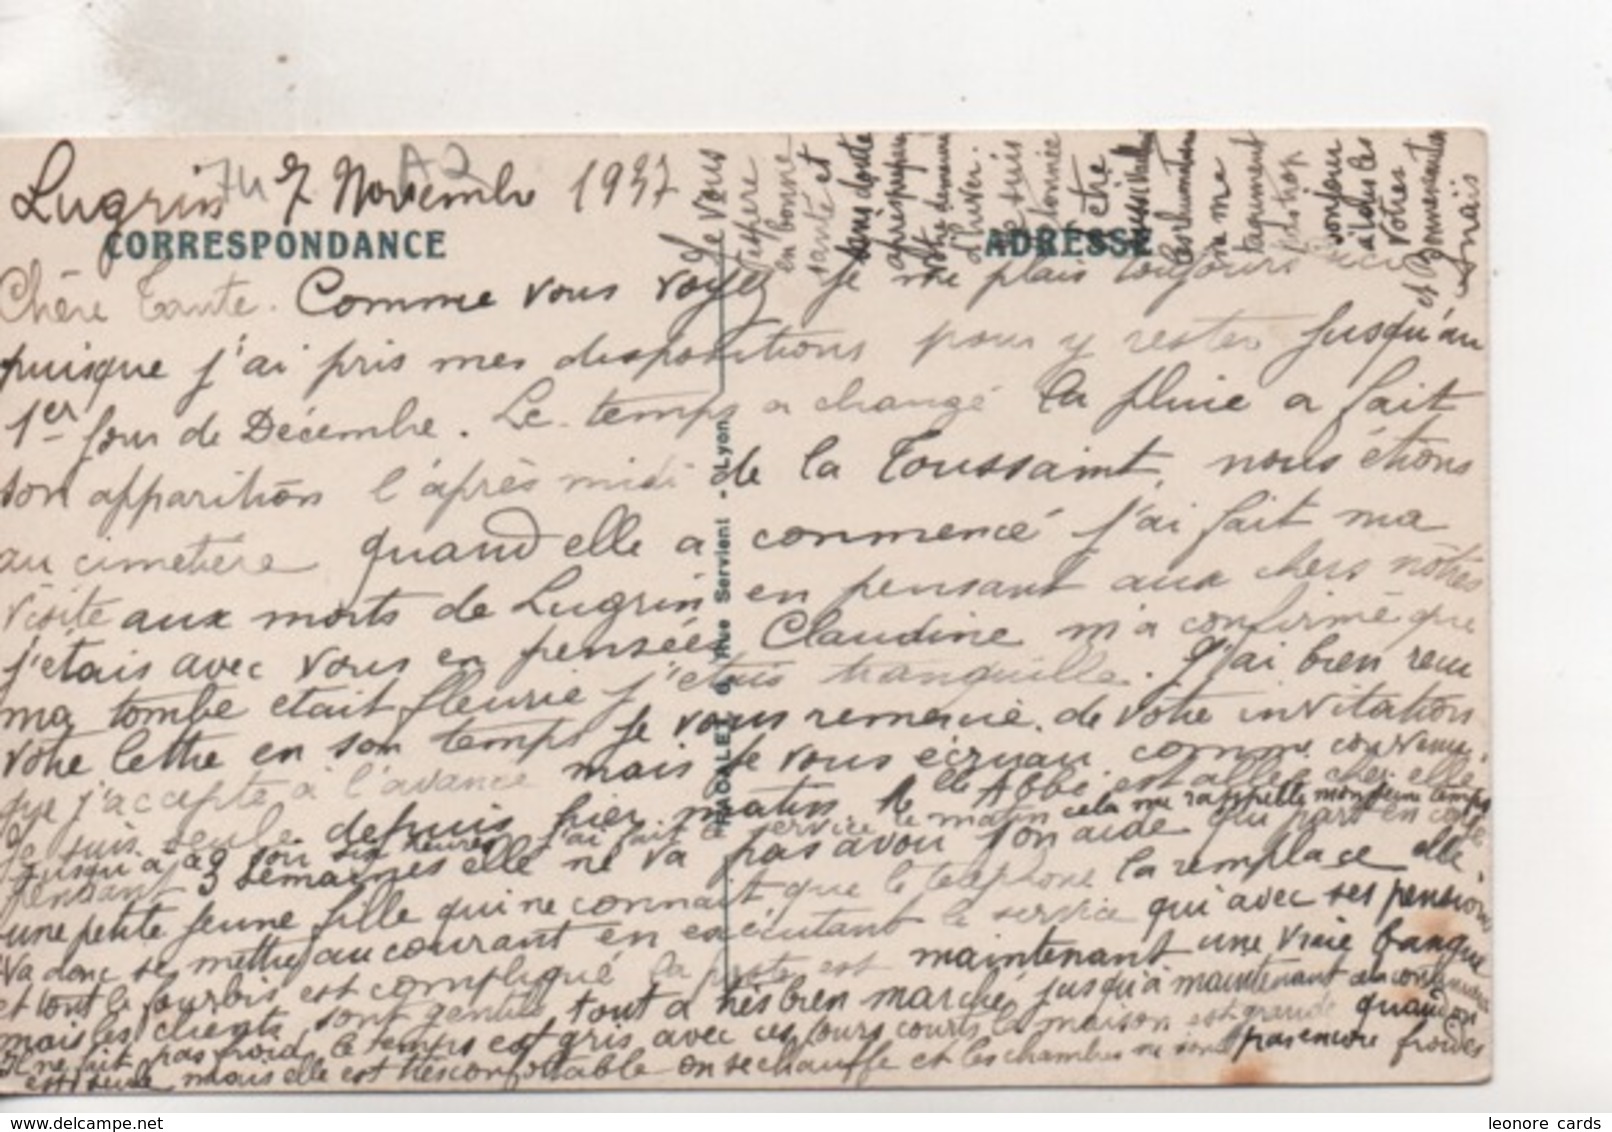 Lugrin 7 Novembre 1937
74
A2
CORRESPONDANCE
ADRESSE
Chère Tante. Comme vous voyez je me plais toujours ici
puisque j'ai pris mes dispositions pour y rester jusqu'au
1er jour de Décembre. Le temps a changé la pluie a fait
son apparition l'après midi de la Toussaint, nous étions
au cimetière quand elle a commencé j'ai fait ma
visite aux morts de Lugrin en pensant aux chers nôtres
j'étais avec vous en pensées Claudine m'a confirmé que
ma tombe était fleurie j'étais tranquille. J'ai bien reçu
votre lettre en son temps je vous remercie de votre invitation
que j'accepte à l'avance mais je vous écrirai comme convenu.
Je suis seule depuis hier matin Melle Abbé est allée chez elle
jusqu'à ce soir six heures j'ai fait le service ce matin cela me rappelle mon jeune temps
pendant 3 semaines elle ne va pas avoir son aide qui part en
une petite jeune fille qui ne connait que le téléphone la remplace elle
va donc se mettre au courant en exécutant le service qui avec ses pensions
et tout le fourbis est compliqué la poste est maintenant une vraie banque
mais les clients sont gentils tout a très bien marché jusqu'à maintenant
Il ne fait pas froid le temps est gris avec ces jours courts la maison est grande quand on
est seule mais elle est très confortable on se chauffe et les chambres ne sont pas encore froides
Je vous
espère
en bonne
santé et
sans doute
après
votre
d'hiver.
Je suis
étonnée
être
les
sa me
trop
bonjour
à tous les
votres
et Bonne
Anaïs
RACALET 6, rue Servient - Lyon
leonore cards